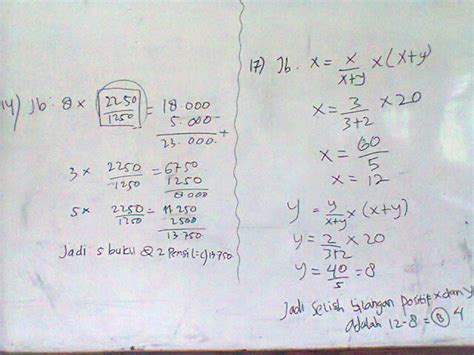 14) Jb: 8 × 2250/1250 = 18.000
5.000 +
23.000.
3 × 2250/1250 = 6750
1250
8000
5 × 2250/1250 = 11 250
2500
13 750
Jadi 5 buku & 2 Pensil = c) 13 750
17) Jb. x = x/x+y × (x+y)
x = 3/3+2 × 20
x = 60/5
x = 12
y = y/x+y × (x+y)
y = 2/3+2 × 20
y = 40/5 = 8
Jadi Selisih bilangan positif x dan y
adalah 12-8 = (B) 4